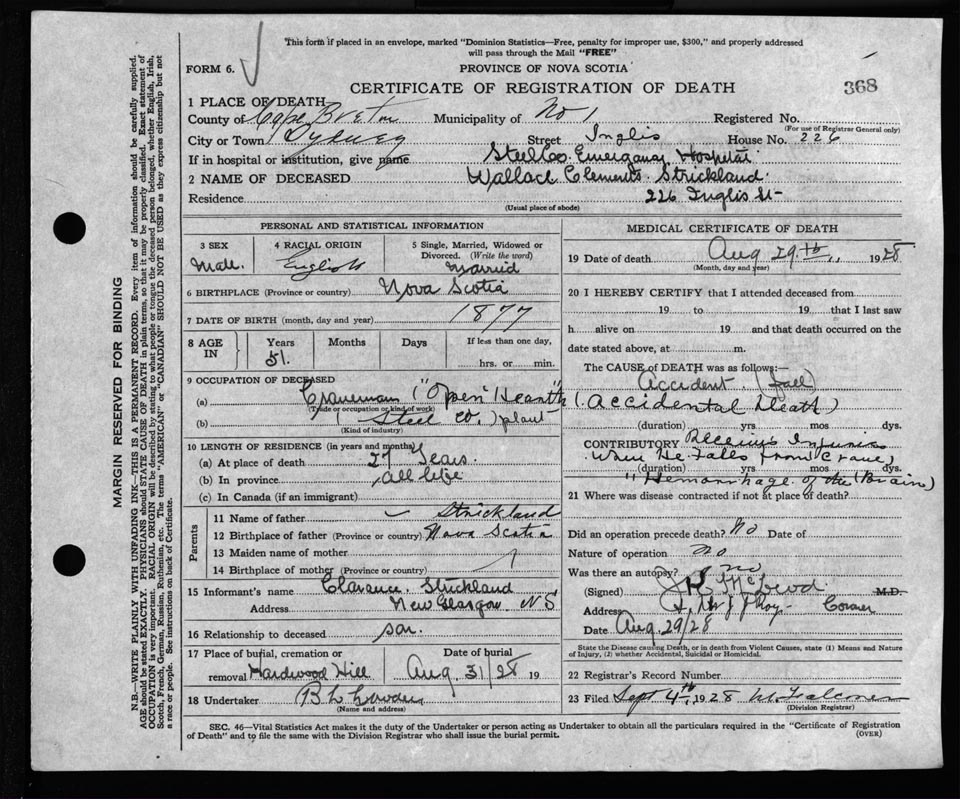 This form if placed in an envelope, marked "Dominion Statistics—Free, penalty for improper use, $300," and properly addressed
will pass through the Mail "FREE"
FORM 6.
PROVINCE OF NOVA SCOTIA
368
CERTIFICATE OF REGISTRATION OF DEATH
1 PLACE OF DEATH
County of Cape Breton Municipality of No 1 Registered No.
(For use of Registrar General only)
City or Town Sydney Street Inglis House No. 226
If in hospital or institution, give name Steel Co. Emergancy Hospital
2 NAME OF DECEASED Wallace Clements Strickland
Residence 226 Inglis St
(Usual place of abode)
PERSONAL AND STATISTICAL INFORMATION
3 SEX 4 RACIAL ORIGIN 5 Single, Married, Widowed or
Divorced. (Write the word)
Male. English Married
6 BIRTHPLACE (Province or country) Nova Scotia
7 DATE OF BIRTH (month, day and year) 1877
8 AGE IN Years Months Days If less than one day,
51. hrs. or min.
9 OCCUPATION OF DECEASED
(a) Craneman ("Open Hearth"
(Trade or occupation or kind of work)
(b) Steel Co.) plant
(Kind of industry)
10 LENGTH OF RESIDENCE (in years and months)
(a) At place of death 27 Years.
(b) In province all life
(c) In Canada (if an immigrant)
Parents
11 Name of father Strickland
12 Birthplace of father (Province or country) Nova Scotia
13 Maiden name of mother
14 Birthplace of mother (Province or country)
15 Informant's name Clarence Strickland
Address New Glasgow. NS
16 Relationship to deceased son.
17 Place of burial, cremation or Date of burial
removal Hardwood Hill Aug 31/28 19
18 Undertaker
(Name and address)
MEDICAL CERTIFICATE OF DEATH
19 Date of death Aug 29th 1928
(Month, day and year)
20 I HEREBY CERTIFY that I attended deceased from
19 to 19 that I last saw
h alive on 19 and that death occurred on the
date stated above, at m.
The CAUSE of DEATH was as follows:—
Accident. (Fall)
(Accidental Death)
(duration) yrs mos dys.
CONTRIBUTORY Receives Injuries
When He Falls from Crane,
(duration) yrs mos dys.
"Hemorrhage of the Brain)
21 Where was disease contracted if not at place of death?
Did an operation precede death? No Date of
Nature of operation no
Was there an autopsy? no
(Signed) McLeod M.D.
Address Coroner
Date Aug. 29/28
State the Disease causing Death, or in death from Violent Causes, state (1) Means and Nature
of Injury, (2) whether Accidental, Suicidal or Homicidal.
22 Registrar's Record Number
23 Filed Sept 4th 1928 McFalconer
(Division Registrar)
SEC. 46—Vital Statistics Act makes it the duty of the Undertaker or person acting as Undertaker to obtain all the particulars required in the "Certificate of Registration
of Death" and to file the same with the Division Registrar who shall issue the burial permit.
(OVER)
MARGIN RESERVED FOR BINDING
N.B.—WRITE PLAINLY WITH UNFADING INK—THIS IS A PERMANENT RECORD. Every item of information should be carefully supplied.
AGE should be stated EXACTLY. PHYSICIANS should STATE CAUSE OF DEATH in plain terms, so that it may be properly classified. Exact statement of
OCCUPATION is very important. RACIAL ORIGIN will be described by stating to what people or tongue the deceased person belonged, whether English, Irish,
Scotch, French, German, Russian, Ruthenian, etc. The terms "AMERICAN" or "CANADIAN" SHOULD NOT BE USED as they express citizenship but not
a race or people. See instructions on back of Certificate.